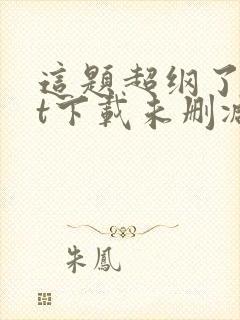 這題超纲了
t下載未删减
朱鳳